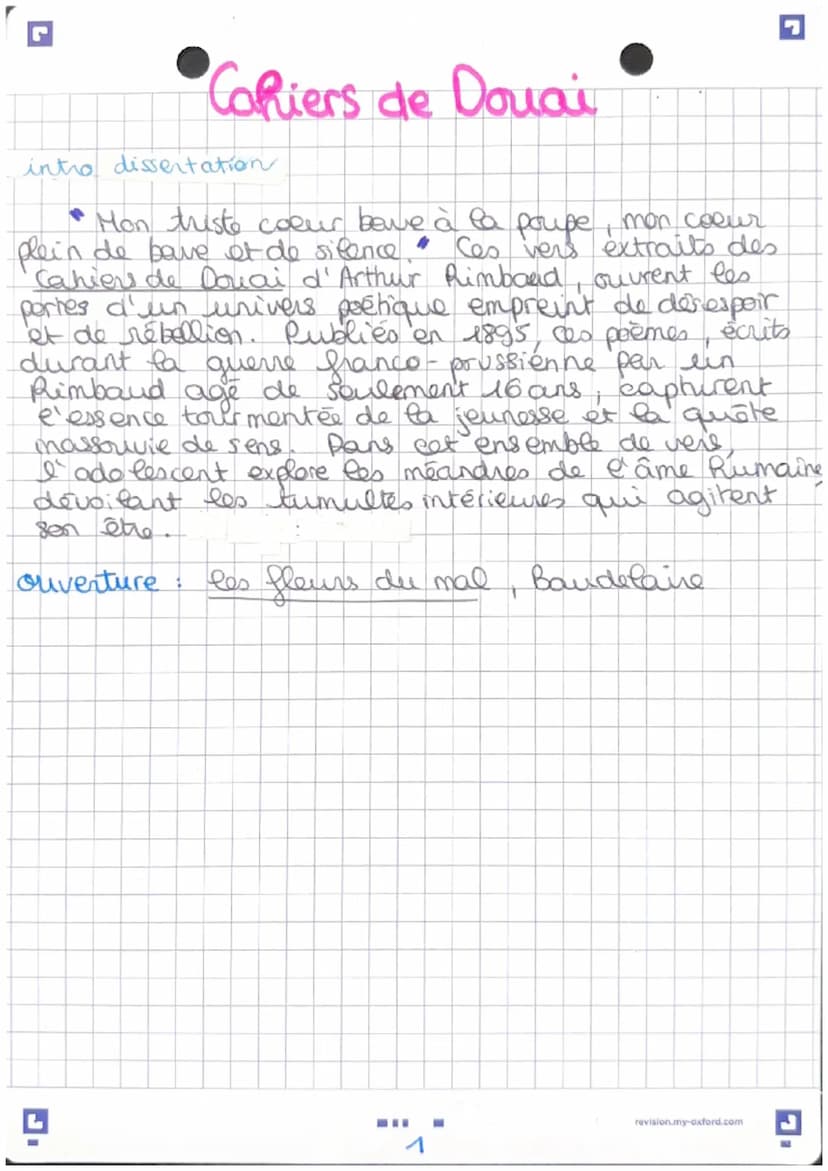 Cahiers de Douai
intro dissertation
" Mon triste coeur bave à la poupe, mon coeur
plein de bave et de silence. " Ces vers extraits des
Cahiers de Douai d'Arthur Rimbaud, ouvrent les
portes d'un univers poétique empreint de désespoir
et de rébellion. Publiés en 1895, ces poèmes, écrits
durant la guerre franco-prussienne par un
Rimbaud agé de seulement 16 ans, capturent
l'essence tourmentée de la jeunesse et la quête
inassouvie de sens. Dans cet ensemble de vers,
l'adolescent explore les méandres de l'âme humaine,
dévoilant les tumultes intérieures qui agitent
son être.
ouverture : les fleurs du mal, Baudelaire
revision.my-oxford.com
1